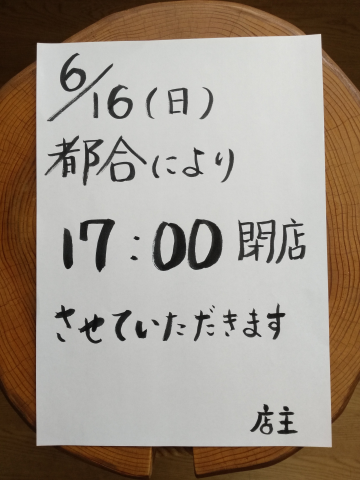 6/16(日)
都合により
17:00 閉店
させていただきます
店主